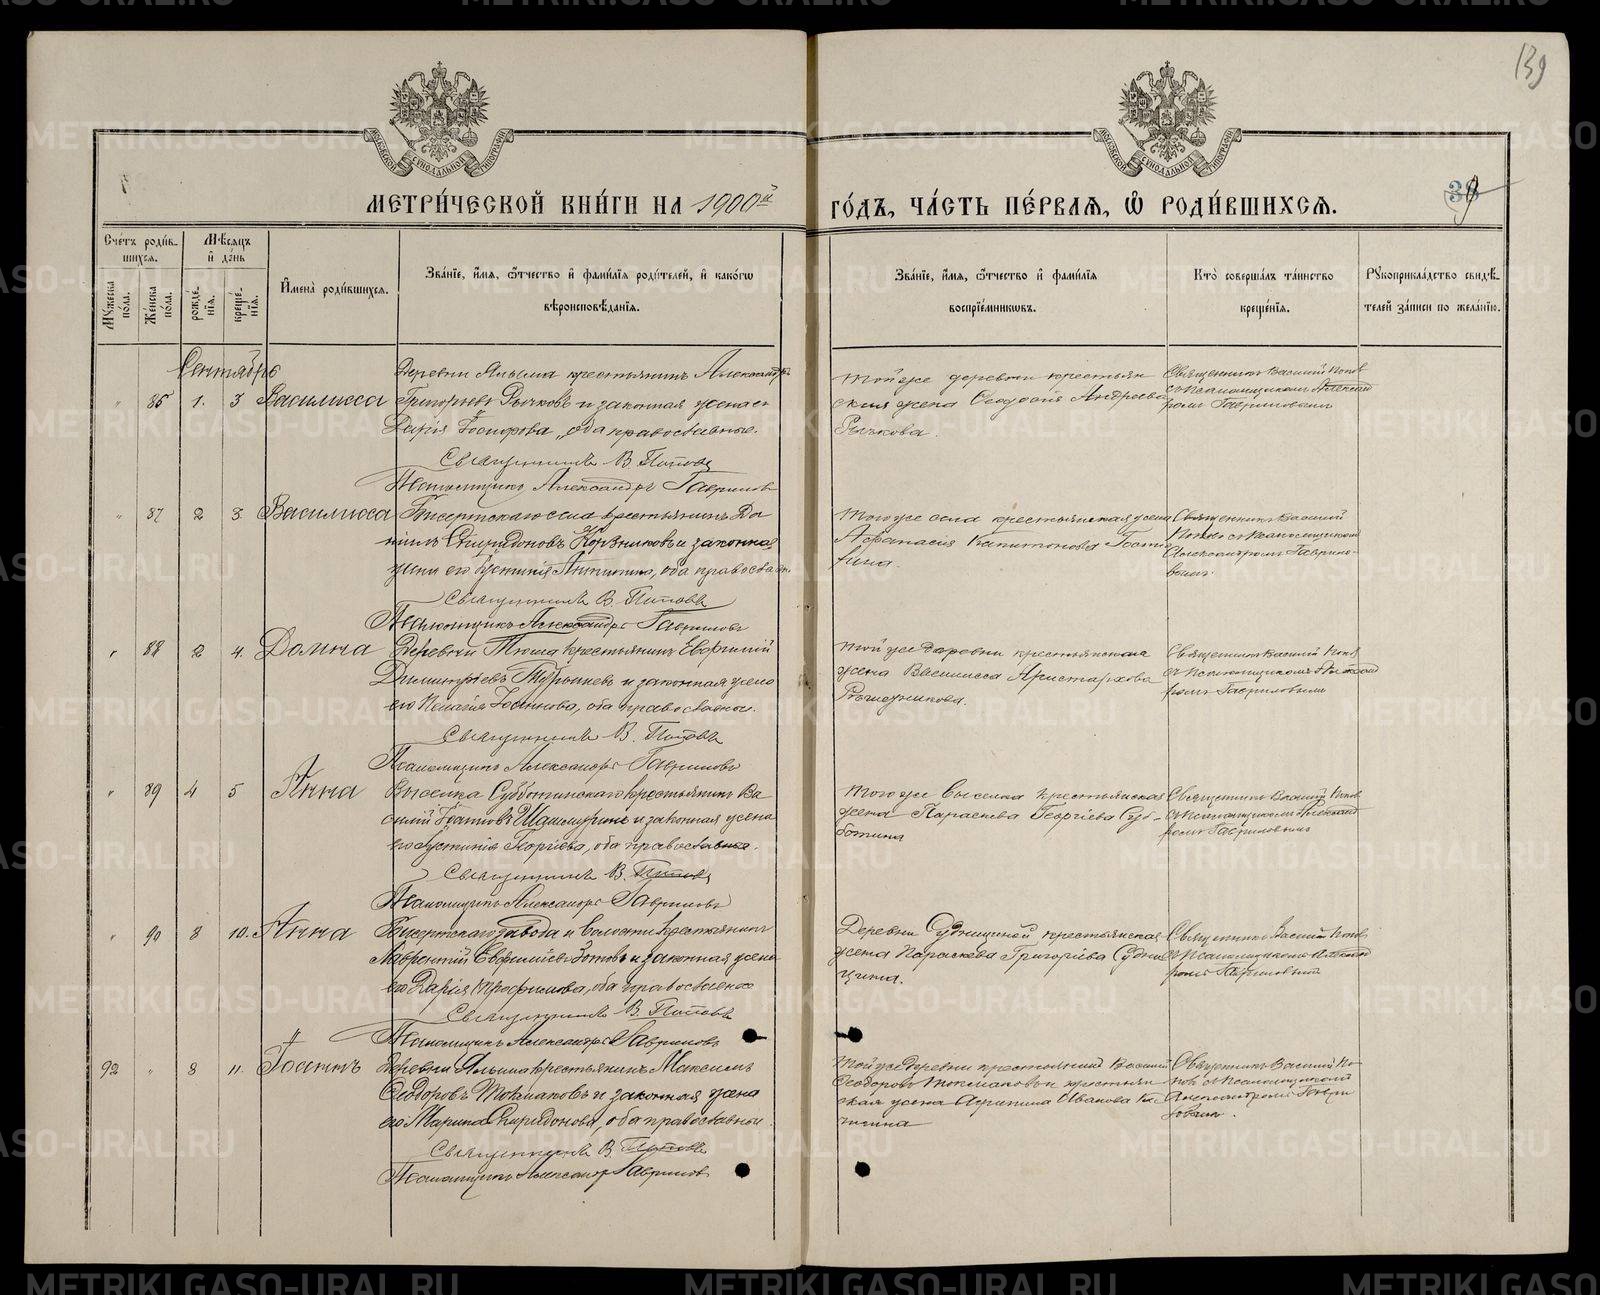 139
МОСКОВСКОЙ СѴНОДАЛЬНОЙ ТИПОГРАФІИ
МОСКОВСКОЙ СѴНОДАЛЬНОЙ ТИПОГРАФІИ
МЕТРИ́ЧЕСКОЙ КНИ́ГИ НА 1900й
ГО́ДЪ, ЧА́СТЬ ПЕ́РВАЯ, Ѡ РОДИ́ВШИХСЯ.
Сче́тъ роди́в-
шихся.
Му́жеска по́ла.
Же́нска по́ла.
Мѣ́сяцъ и де́нь
рожде́нїя.
креще́нїя.
И҆мена̀ роди́вшихся.
Зва́нїе, и҆́мя, ѻ҆́тчество и҆ фами́лїя роди́телей, и҆ како́гѡ
вѣроисповѣ́данїя.
Зва́нїе, и҆́мя, ѻ҆́тчество и҆ фами́лїя
воспрїе́мниковъ.
Кто̀ соверша́лъ та́инство
креще́нїя.
Рꙋкоприкла́дство свидѣ́-
телей за́писи по жела́нїю.
Сентябрь
" 86 1. 3 Василисса
Деревни Алыма крестьянинъ Александръ
Григорьевъ Рычковъ и законная жена его
Дарія Іосифова, оба православные.
Священникъ В. Поповъ
Псаломщикъ Александръ Гавриловъ
Той же деревни крестьян
ская жена Ѳеодосія Андреева
Рычкова.
Священникъ Василій Попов
съ псаломщикомъ Александ
ромъ Гавриловымъ
" 87 2 3 Василисса
Бисертскаго села крестьянинъ Да
ніилъ Спиридоновъ и законная
жена его оба православн.
Священникъ В. Поповъ
Псаломщикъ Александръ Гавриловъ
Того же села крестьянская жена
Аѳанасія Капитонова
Священникъ Василій
Поповъ съ псаломщикомъ
Александромъ Гаврило-
вымъ.
" 88 2 4. Домна
Деревни крестьянинъ Евфимій
Димитріевъ и законная жена
его Пелагія Іоаннова, оба православные.
Священникъ В. Поповъ
Псаломщикъ Александръ Гавриловъ
Той же деревни крестьянская
жена Василисса Аристархова
Священникъ Василій Попов
съ псаломщикомъ Александ
ромъ Гавриловымъ
" 89 4 5 Анна
Выселка Субботинскаго крестьянинъ Ва
силій Іоанновъ и законная жена
его Іустинія Георгіева, оба православные.
Священникъ В. Поповъ
Псаломщикъ Александръ Гавриловъ
Того же выселка крестьянская
жена Параскева Георгіева Суб-
ботина
Священникъ Василій Попов
съ псаломщикомъ Александ
ромъ Гавриловымъ
" 90 8 10. Анна
Бисертскаго завода и волости крестьянинъ
Лаврентій Евфиміевъ Зотовъ и законная жена
его Дарія Трофимова, оба православные
Священникъ В. Поповъ
Псаломщикъ Александръ Гавриловъ
Деревни крестьянская
жена Параскева Григоріева
Священникъ Василій Попов
съ псаломщикомъ Александ
ромъ Гавриловымъ
92 " 8 11. Іоаннъ
Деревни Алыма крестьянинъ Максимъ
Ѳеодоровъ Токмаковъ и законная жена
его Марина Спиридонова, оба православные
Священникъ В. Поповъ
Псаломщикъ Александръ Гавриловъ
Той же деревни крестьянинъ Василій
Ѳеодоровъ Токмаковъ и крестьян
ская жена Агрипина Иванова
Священникъ Василій По-
повъ съ псаломщикомъ
Александромъ Гаври
ловымъ.
METRIKI.GASO-URAL.RU